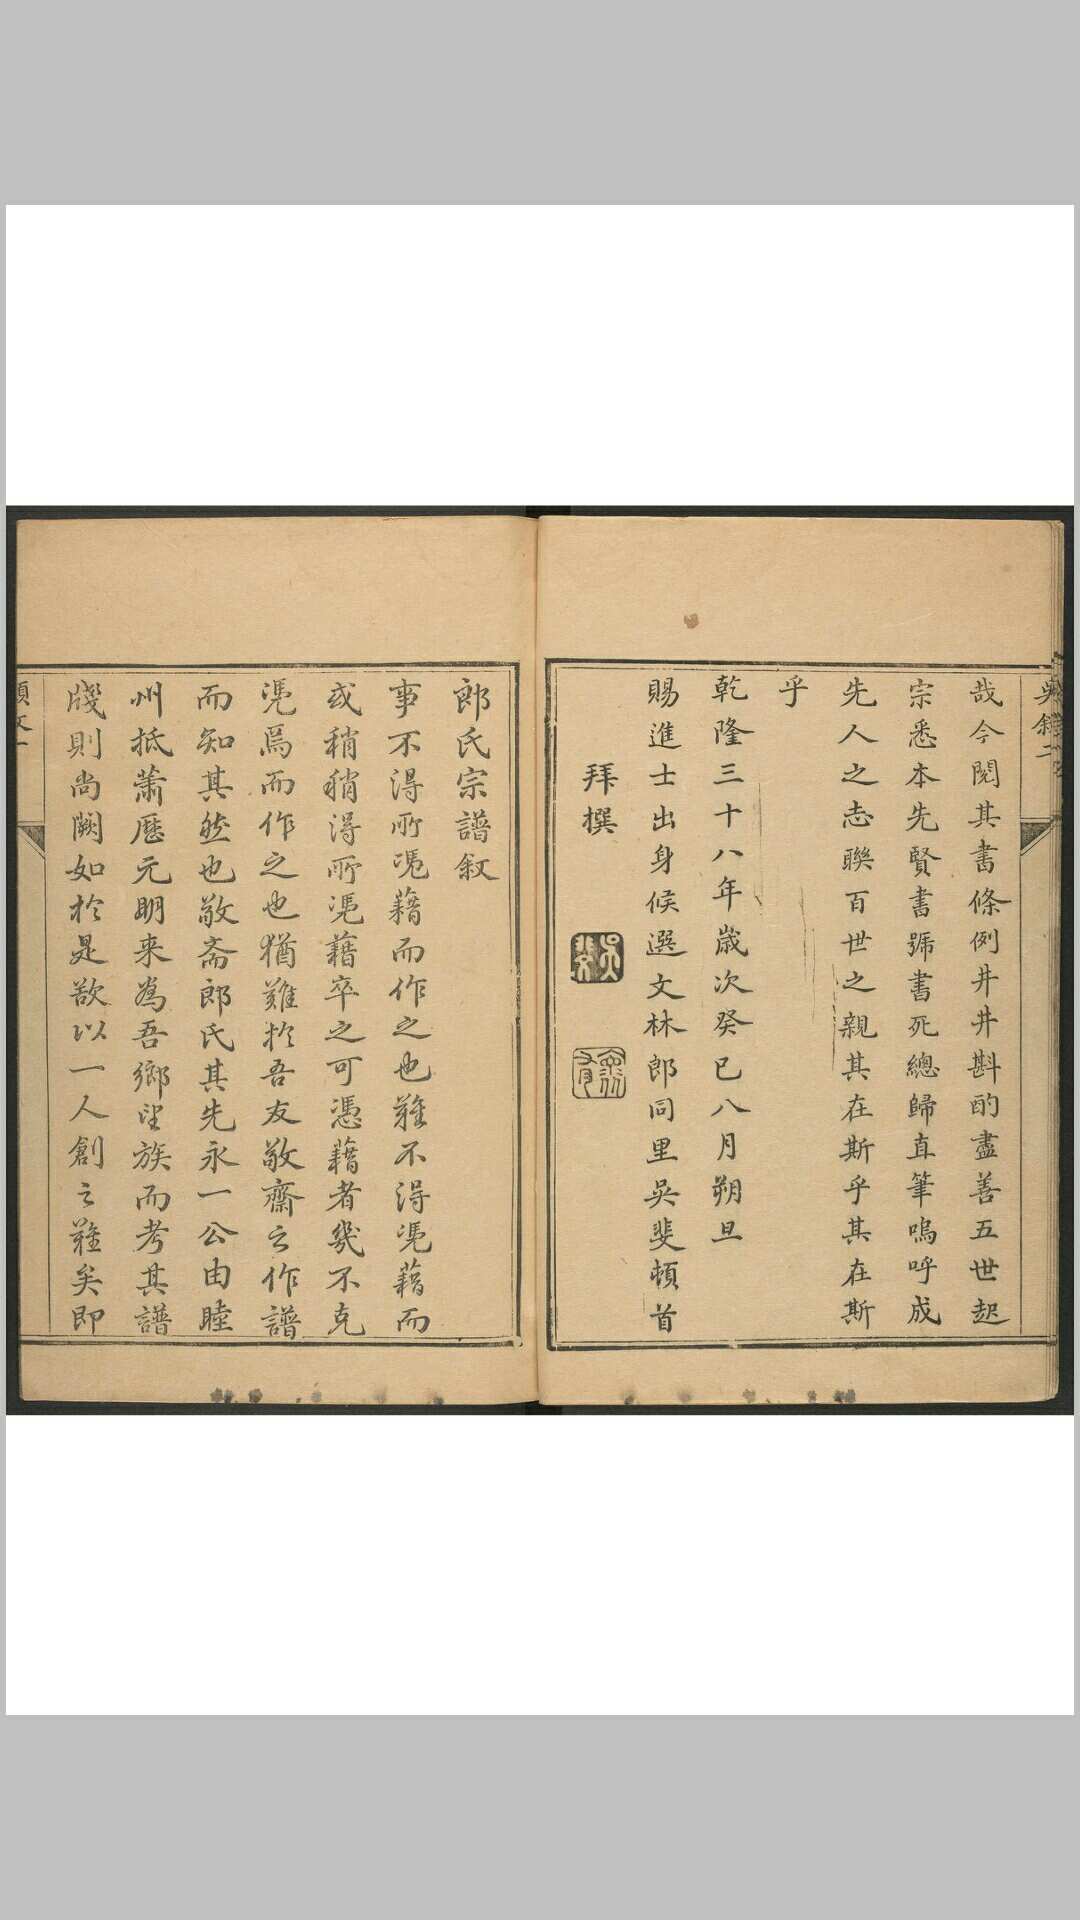 吳敘二
哉今閱其書條例井井斟酌盡善五世起
宗悉本先賢書號書死總歸直筆嗚呼成
先人之志聯百世之親其在斯乎其在斯
乎
乾隆三十八年歲次癸巳八月朔旦
賜進士出身候選文林郎同里吳斐頓首
拜撰
郎氏宗譜敘
事不得所凴藉而作之也難不得凴藉而
或稍稍得所凴藉卒之可憑藉者幾不克
凴焉而作之也猶難於吾友敬齋之作譜
而知其然也敬斋郎氏其先永一公由睦
州抵蕭歷元明来為吾鄉望族而考其譜
牋則尚闕如於是欲以一人創之難矣即